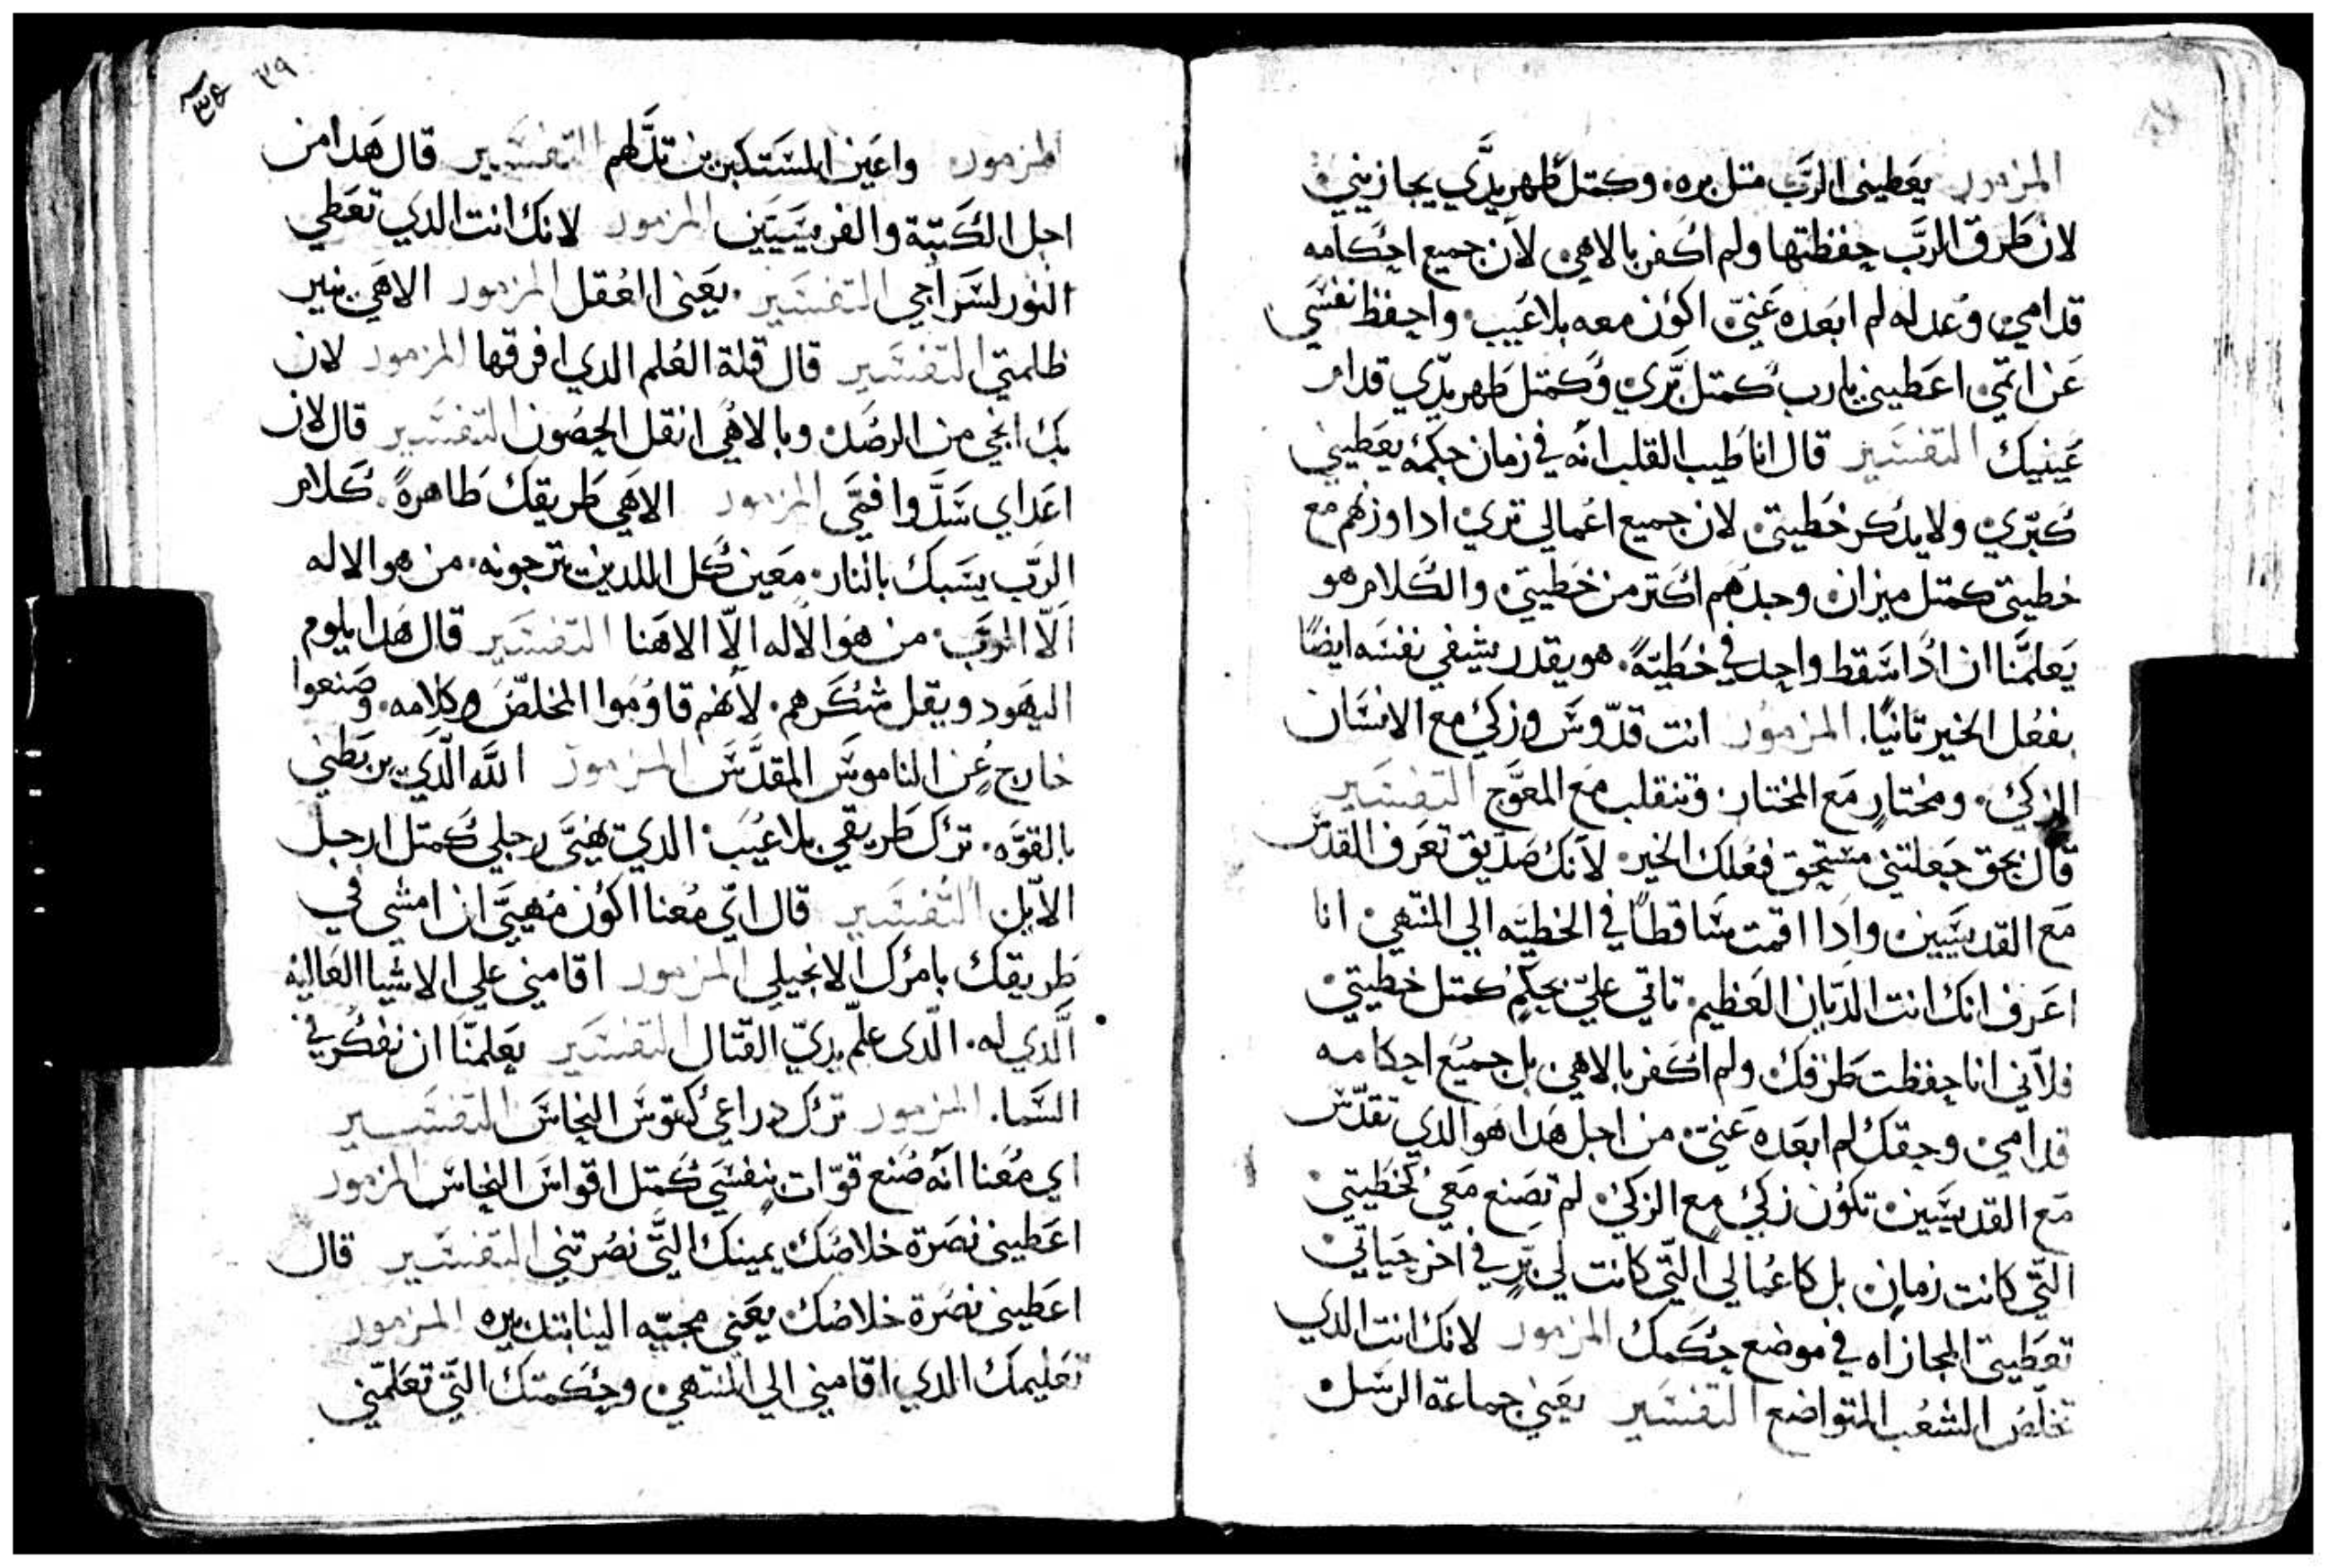 المزمور يعَطيني الرَّب متل بره. وكمتل طهر يدَّي يجازيني
لان طَرق الرَّب حفظتها ولم اكفر بالاهي لان جميع احكامه
قدامي وعدله لم ابعَده عَنيّ اكوُن معه بلا عَيب. واحفظ نفسَي
عَن اتمي اعَطيني يارب كمتل برَّي وكمتل طَهر يدّي قدام
عَينيك التفسَير قال انا طَيب القلب انه في زمان حكمه يعَطيني
كبرّي ولا يدكر خطَيتي لان جميع اعمالي تري ادا وزنهم مع
خطيتي كمتل ميزان وجدهم اكتر من خَطيتي والكلام هو
يَعلمَّنا ان ادا سَقط واحد في خطَيةً. هو يقدر يشفي نفسَه ايضًا
بفعُل الخير تانيًا. المزمور انت قدّوسَ وزكي مع الانسَان
الزكي. ومختار مَع المختار. وتنقلب مَع المعَوَّج التفسَير
قال بحق جعَلتني مسَتحق فعُلك الخير لانك صَدّيق تعَرف القدّسَ
مَع القديسَيين وادا اقمت سَاقطًا في الخطيَه الي المنتهي انا
اعَرف انك انت الديّان العَظيم تاتي عليّ بحكم كمتل خطيتي
فلاّني انا حفظت طَرقك ولم اكفر بالاهي بل جميَع احكامه
قدامي وحقك لم ابعَده عَنيّ من اجل هَدا هَو الدي تقدّسَ
مَع القديسَيين تكوُن زكي مع الزكي لم تصَنع مَعي كخطَيتي
التّي كانت زمان بل كاعمالي التّي كانت لي بّر في اخر حيَاتي
تعَطَيني المجازاه في موضع حكمك المزمور لانك انت الدي
تخلّص الشعُب المتواضع التفسَير يعَني جماعَة الرسَل
٣٩
المزمور واعَين المسَتكبرين تدّلهم التفسَير قال هَدا من
اجل الكتبة والفريسَيين المزمور لانك انت الدي تعَطي
النور لسَراجي التفسَير. يعَني العُقل المزمور الاهَي ينير
ظلمتي التفسَير قال قلة العُلم الدي افرقها المزمور لان
بك انجي من الرصَد وبالاهُي انقل الحصُون التفسَير قال لان
اعَداي سَدَّوا فمَي المزمور الاهَي طَريقك طَاهرةً. كلام
الربّ يسَبك بالنار. معَين كل اللدين يترجونه. من هو الاله
الاّ الرَبّ. من هَو الاله الاّ الاهَنا التفسَير قال هَدا يلوم
اليهَود ويقل شكَرهم. لانهم قاومُوا المخلّص وكلامه. وصَنعوا
خارج عُن الناموسَ المقدّسَ المزمور اللَّه الّدي يربطني
بالقوَّه. ترك طَريقي بلا عيُب. الدي يهيَّ رجلي كمتل ارجل
الايّل التفسَير قال ايّ معُنا اكوُن مُهيَّ ان امشي في
طريقك بامرُك الانجيلي المزمور اقامني علي الاشيا العَاليه
الَّدي له. الّدي علّم يديّ القتال التفسَير يعَلمنّا ان نفكر في
السَّما. المزمور ترك دراعيُ كقوسَ النحاسَ التفسَير
اي معُنا انه صُنع قوّات بنفسَي كمتل اقواسَ النحاسَ المزمور
اعَطيني نصَرة خلاصَك يمينك التّي نصُرتني التفسَير قال
اعَطيني نصَرة خلاصَك يعَني مجيّه الينا بتدبيره المزمور
تعَليمك الدي اقامني الي المنتهي وحكمتك التّي تعَلمّني